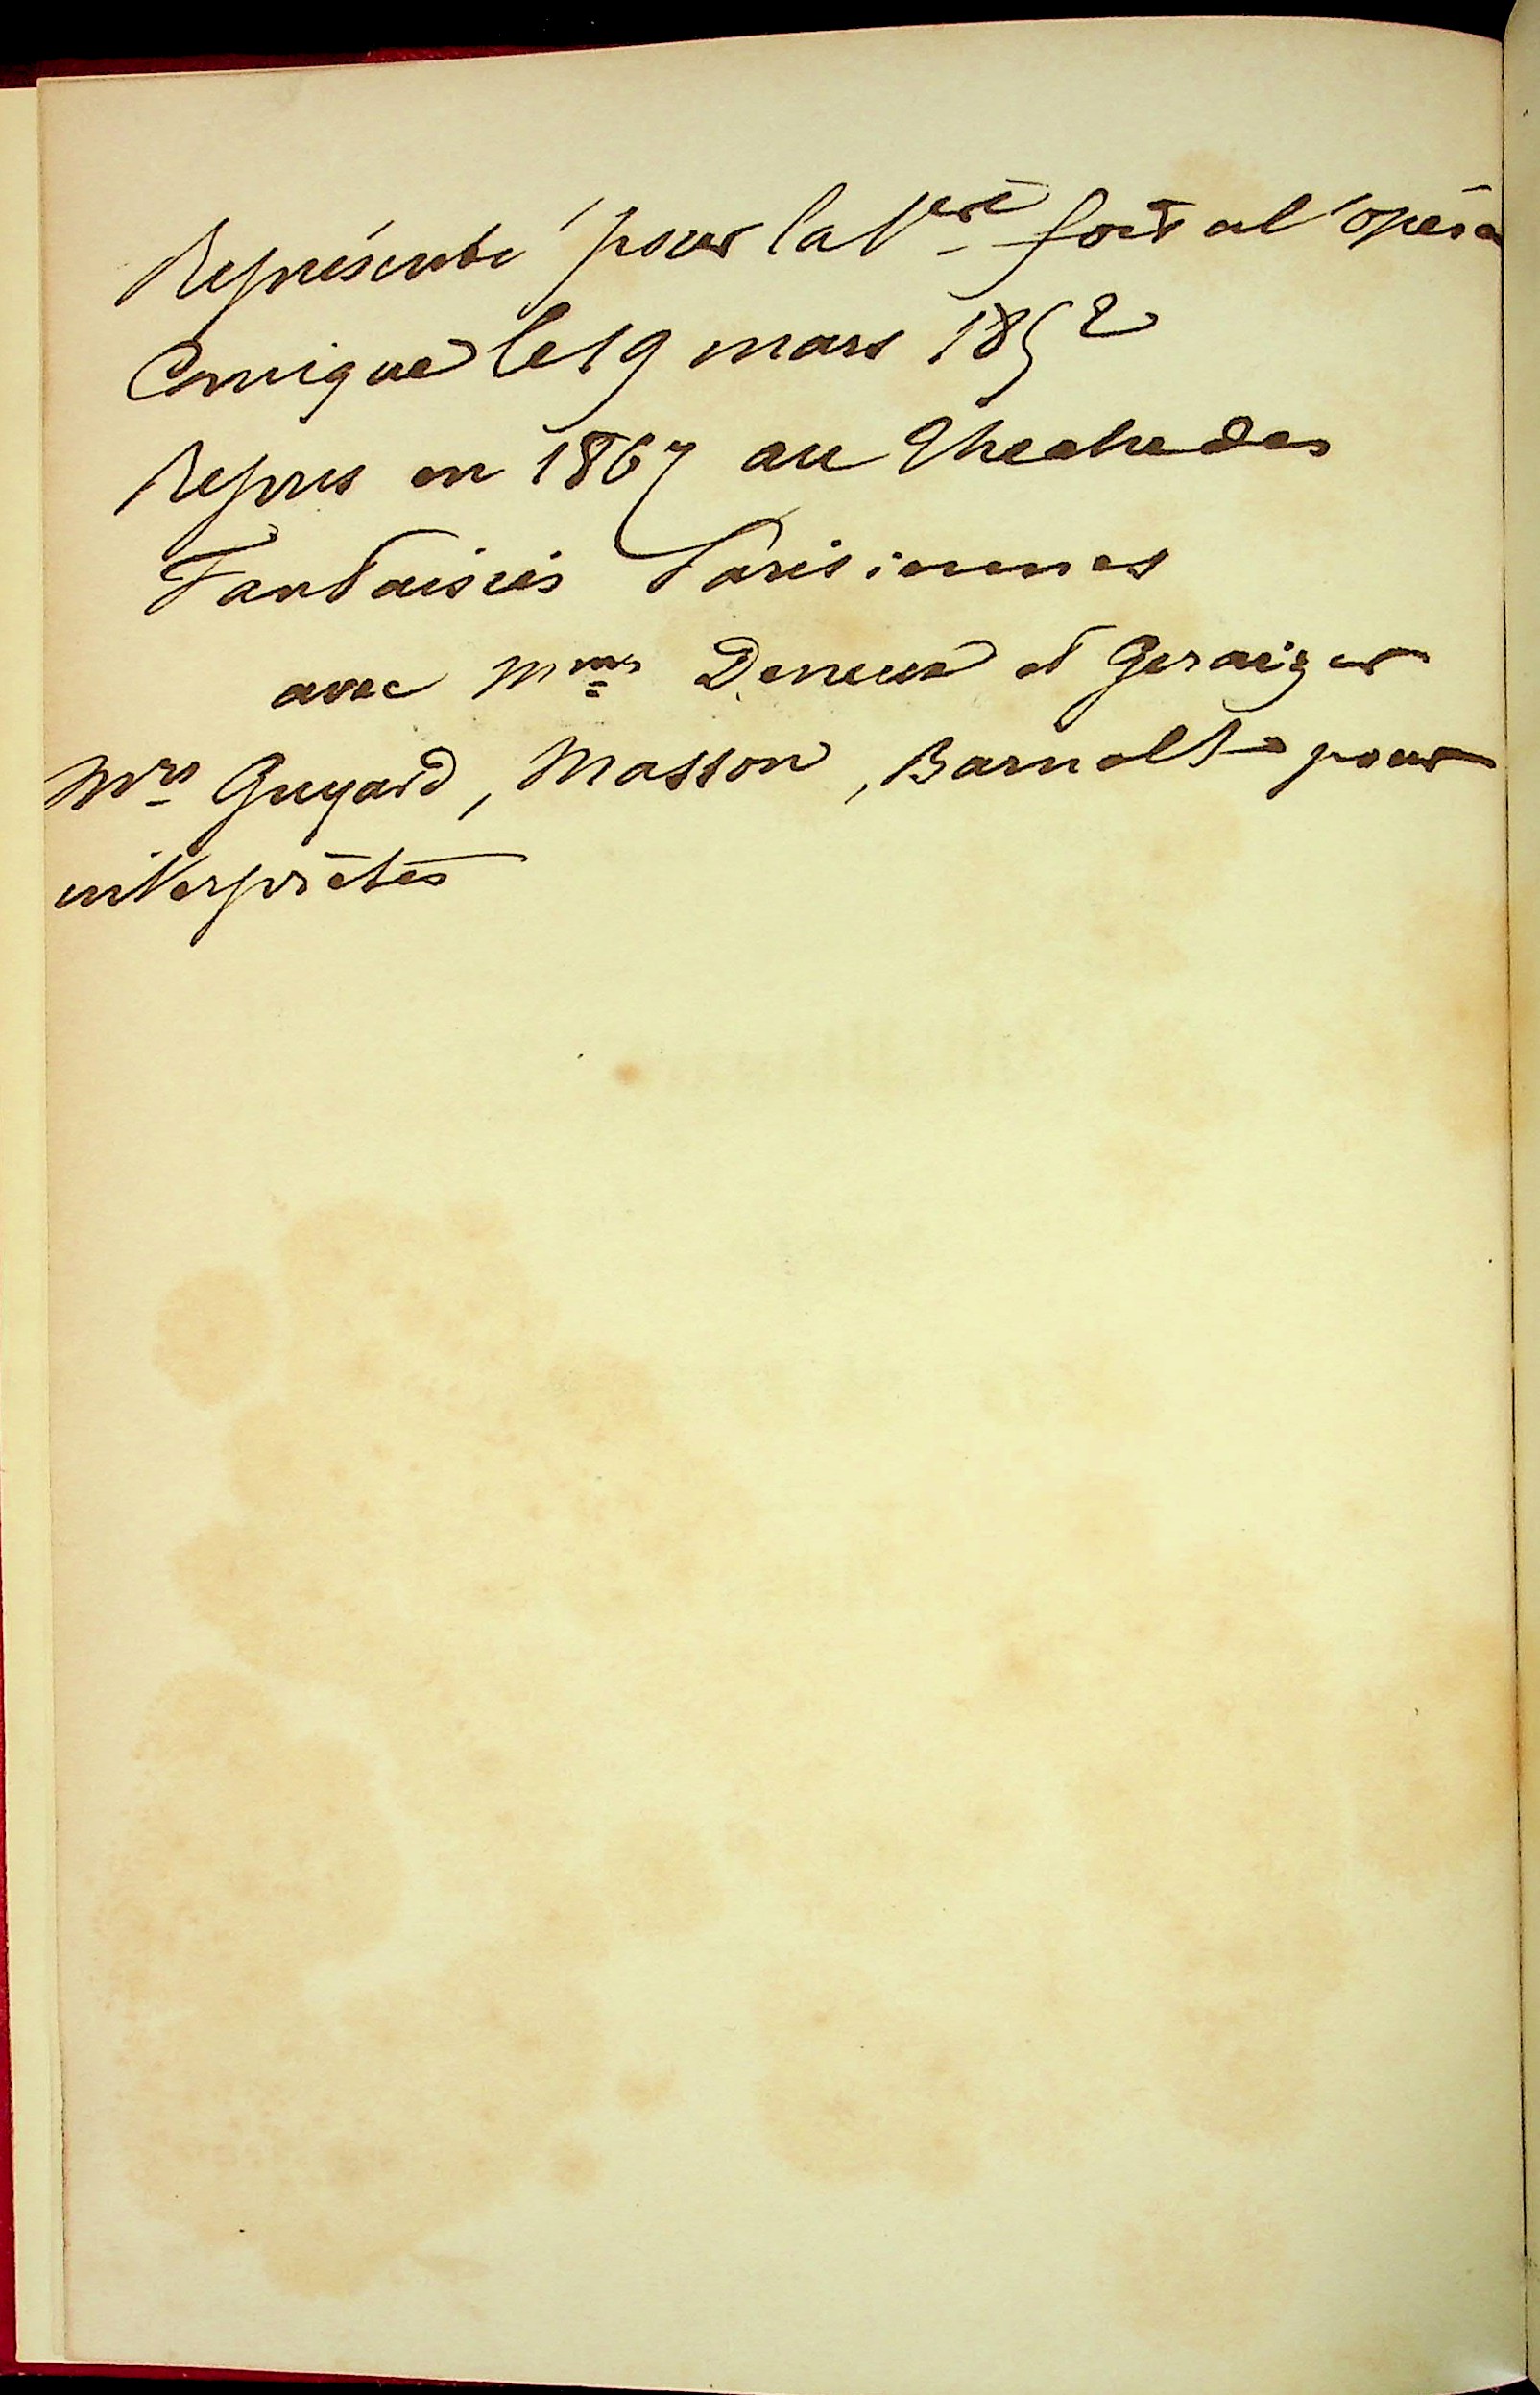 Représenté pour la 1ère fois à l'opéra
Comique le 19 mars 1852
Repris en 1867 au Theatre des
Fantaisies Parisiennes
avec Mmes Geraizer
Mrs Guyard, Masson, Barnolt pour
interprètes